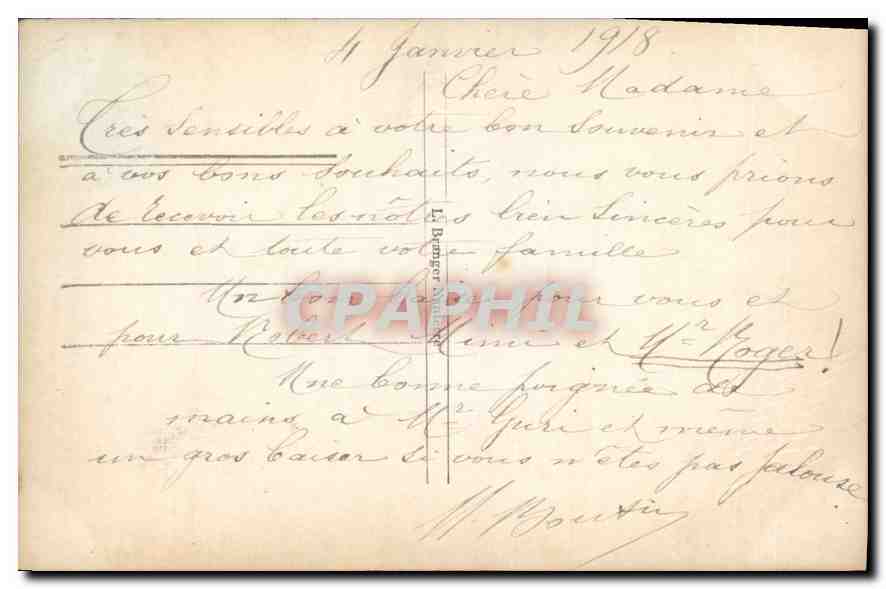 4 Janvier 1918
Chère Madame
Très sensibles à votre bon souvenir et
à vos bons souhaits, nous vous prions
de recevoir les nôtres bien sincères pour
vous et toute votre famille
Un bon baiser pour vous et
pour Robert Mimi et Mr Roger!
Une bonne poignée de
mains à Mr Guri et même
un gros baiser si vous n'êtes pas jalouse
L. Branger
CPAPHIL